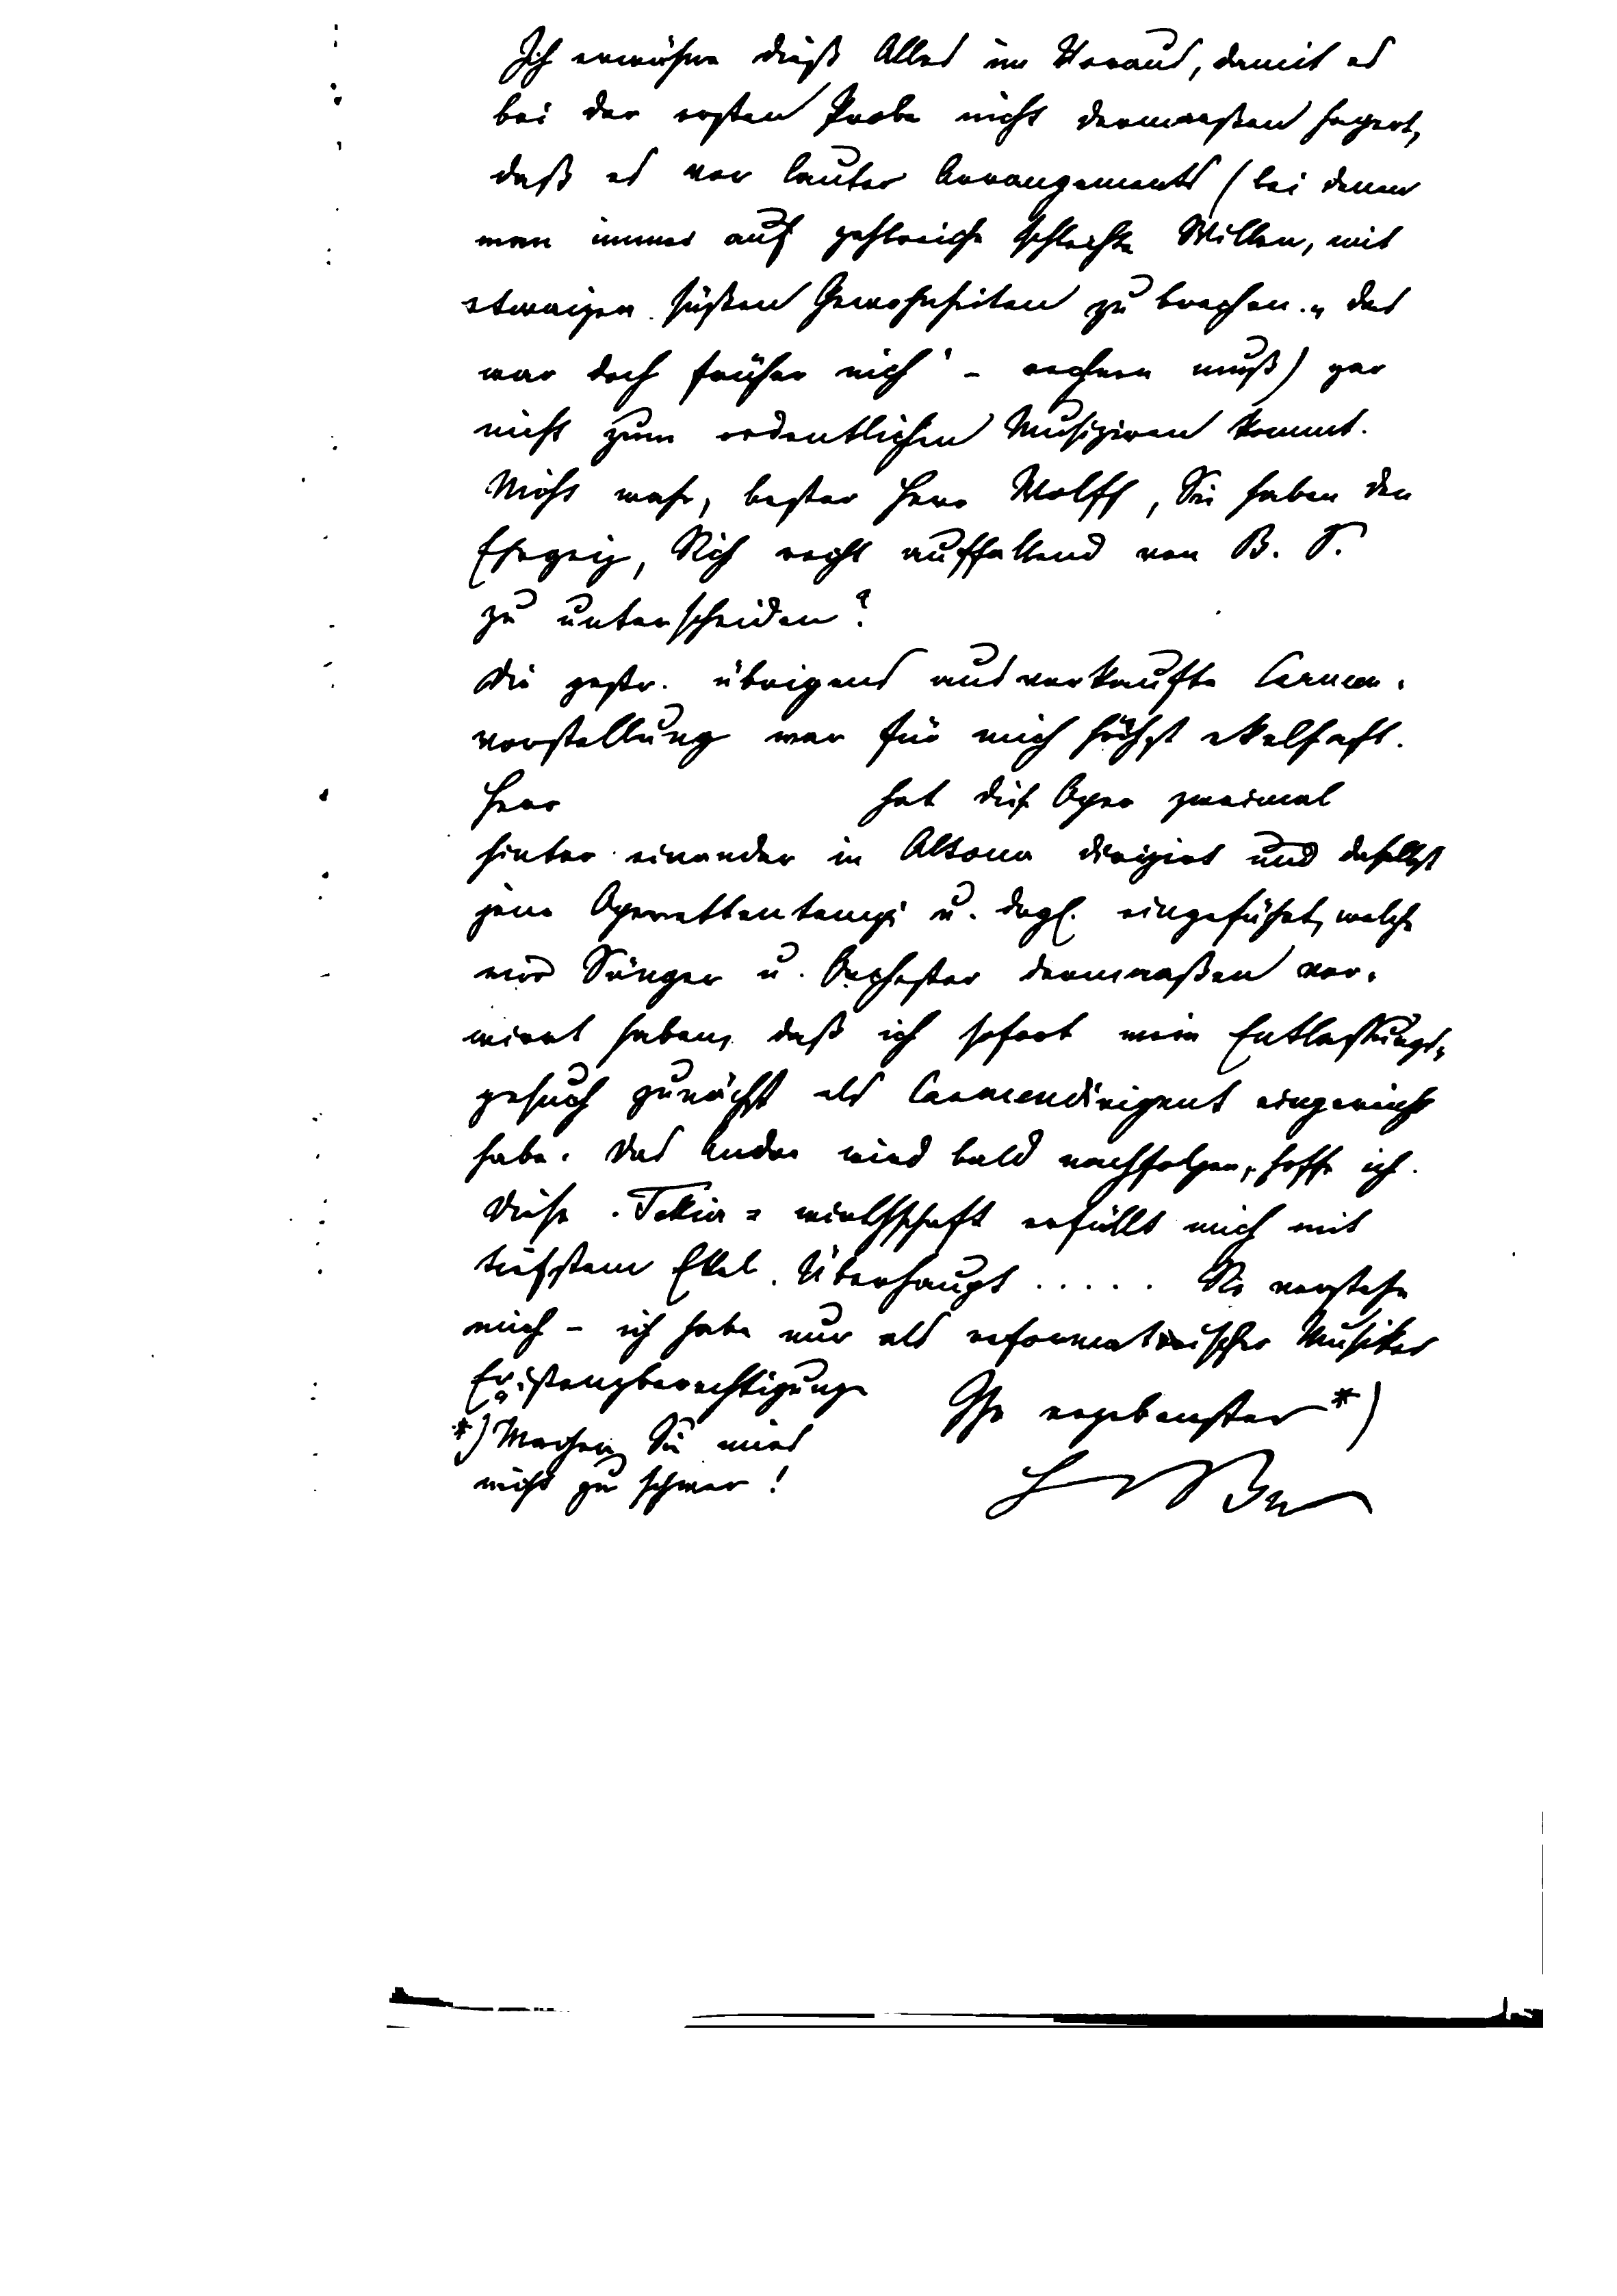 Ich erwähne dieß Alles im Voraus, damit es
bei der ersten Probe nicht dermaaßen hapert,
daß es vor lauter Arrangements (bei denen
man immer auf zahlreiche schlechte Willen, mit
etwaigen süßen Gewohnheiten zu brechen „das
war doch früher nich' – rechnen muß) gar
nicht zum ordentlichen Musiziren kommt.
Nicht wahr, bester Herr Wolff, Sie haben den
Ehrgeiz, Sich recht auffallend von B. P.
zu unterscheiden?
Die gestr. übrigens ausverkaufte Carmen-
vorstellung war für mich höchst ekelhaft.
Herr hat dies. Oper zweimal
hinter einander in Altona dirigirt und daselbst
jene Operettentempi u. drgl. eingeführt, welche
mir Sänger u. Orchester dermaaßen ver-
wirrt haben, daß ich sofort mein Entlassungs-
gesuch zunächst als Carmendirigent eingereicht
habe. Das Andre wird bald nachfolgen, hoffe ich.
Diese wirthschaft erfüllt mich mit
tiefstem Ekel. Überhaupt ..... Sie verstehn
mich – ich habe nur als reformatorischer Musiker
Existenzberechtigung
Ihr ergebenster *)
*) Machen Sie mirs
nicht zu schwer!